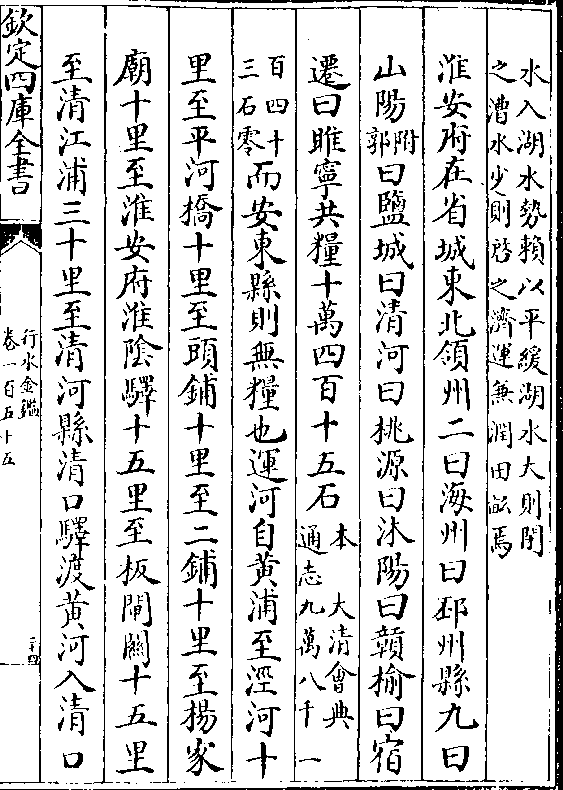 水入湖水勢賴以平緩湖水大則閉
之漕水少則啓之濟運兼潤田畝焉
淮安府在省城東北領州二曰海州曰邳州縣九曰
山陽附郭曰鹽城曰清河曰桃源曰沐陽曰贛榆曰宿
遷曰睢寧共糧十萬四百十五石本大清會典通志九萬八千一
百四十三石零而安東縣則無糧也運河自黃浦至涇河十
里至平河橋十里至頭鋪十里至二鋪十里至楊家
廟十里至淮安府淮陰驛十五里至板閘關十五里
至清江浦三十里至清河縣清口驛渡黃河入清口
欽定四庫全書
行水金鑑
卷一百五十五
二十四